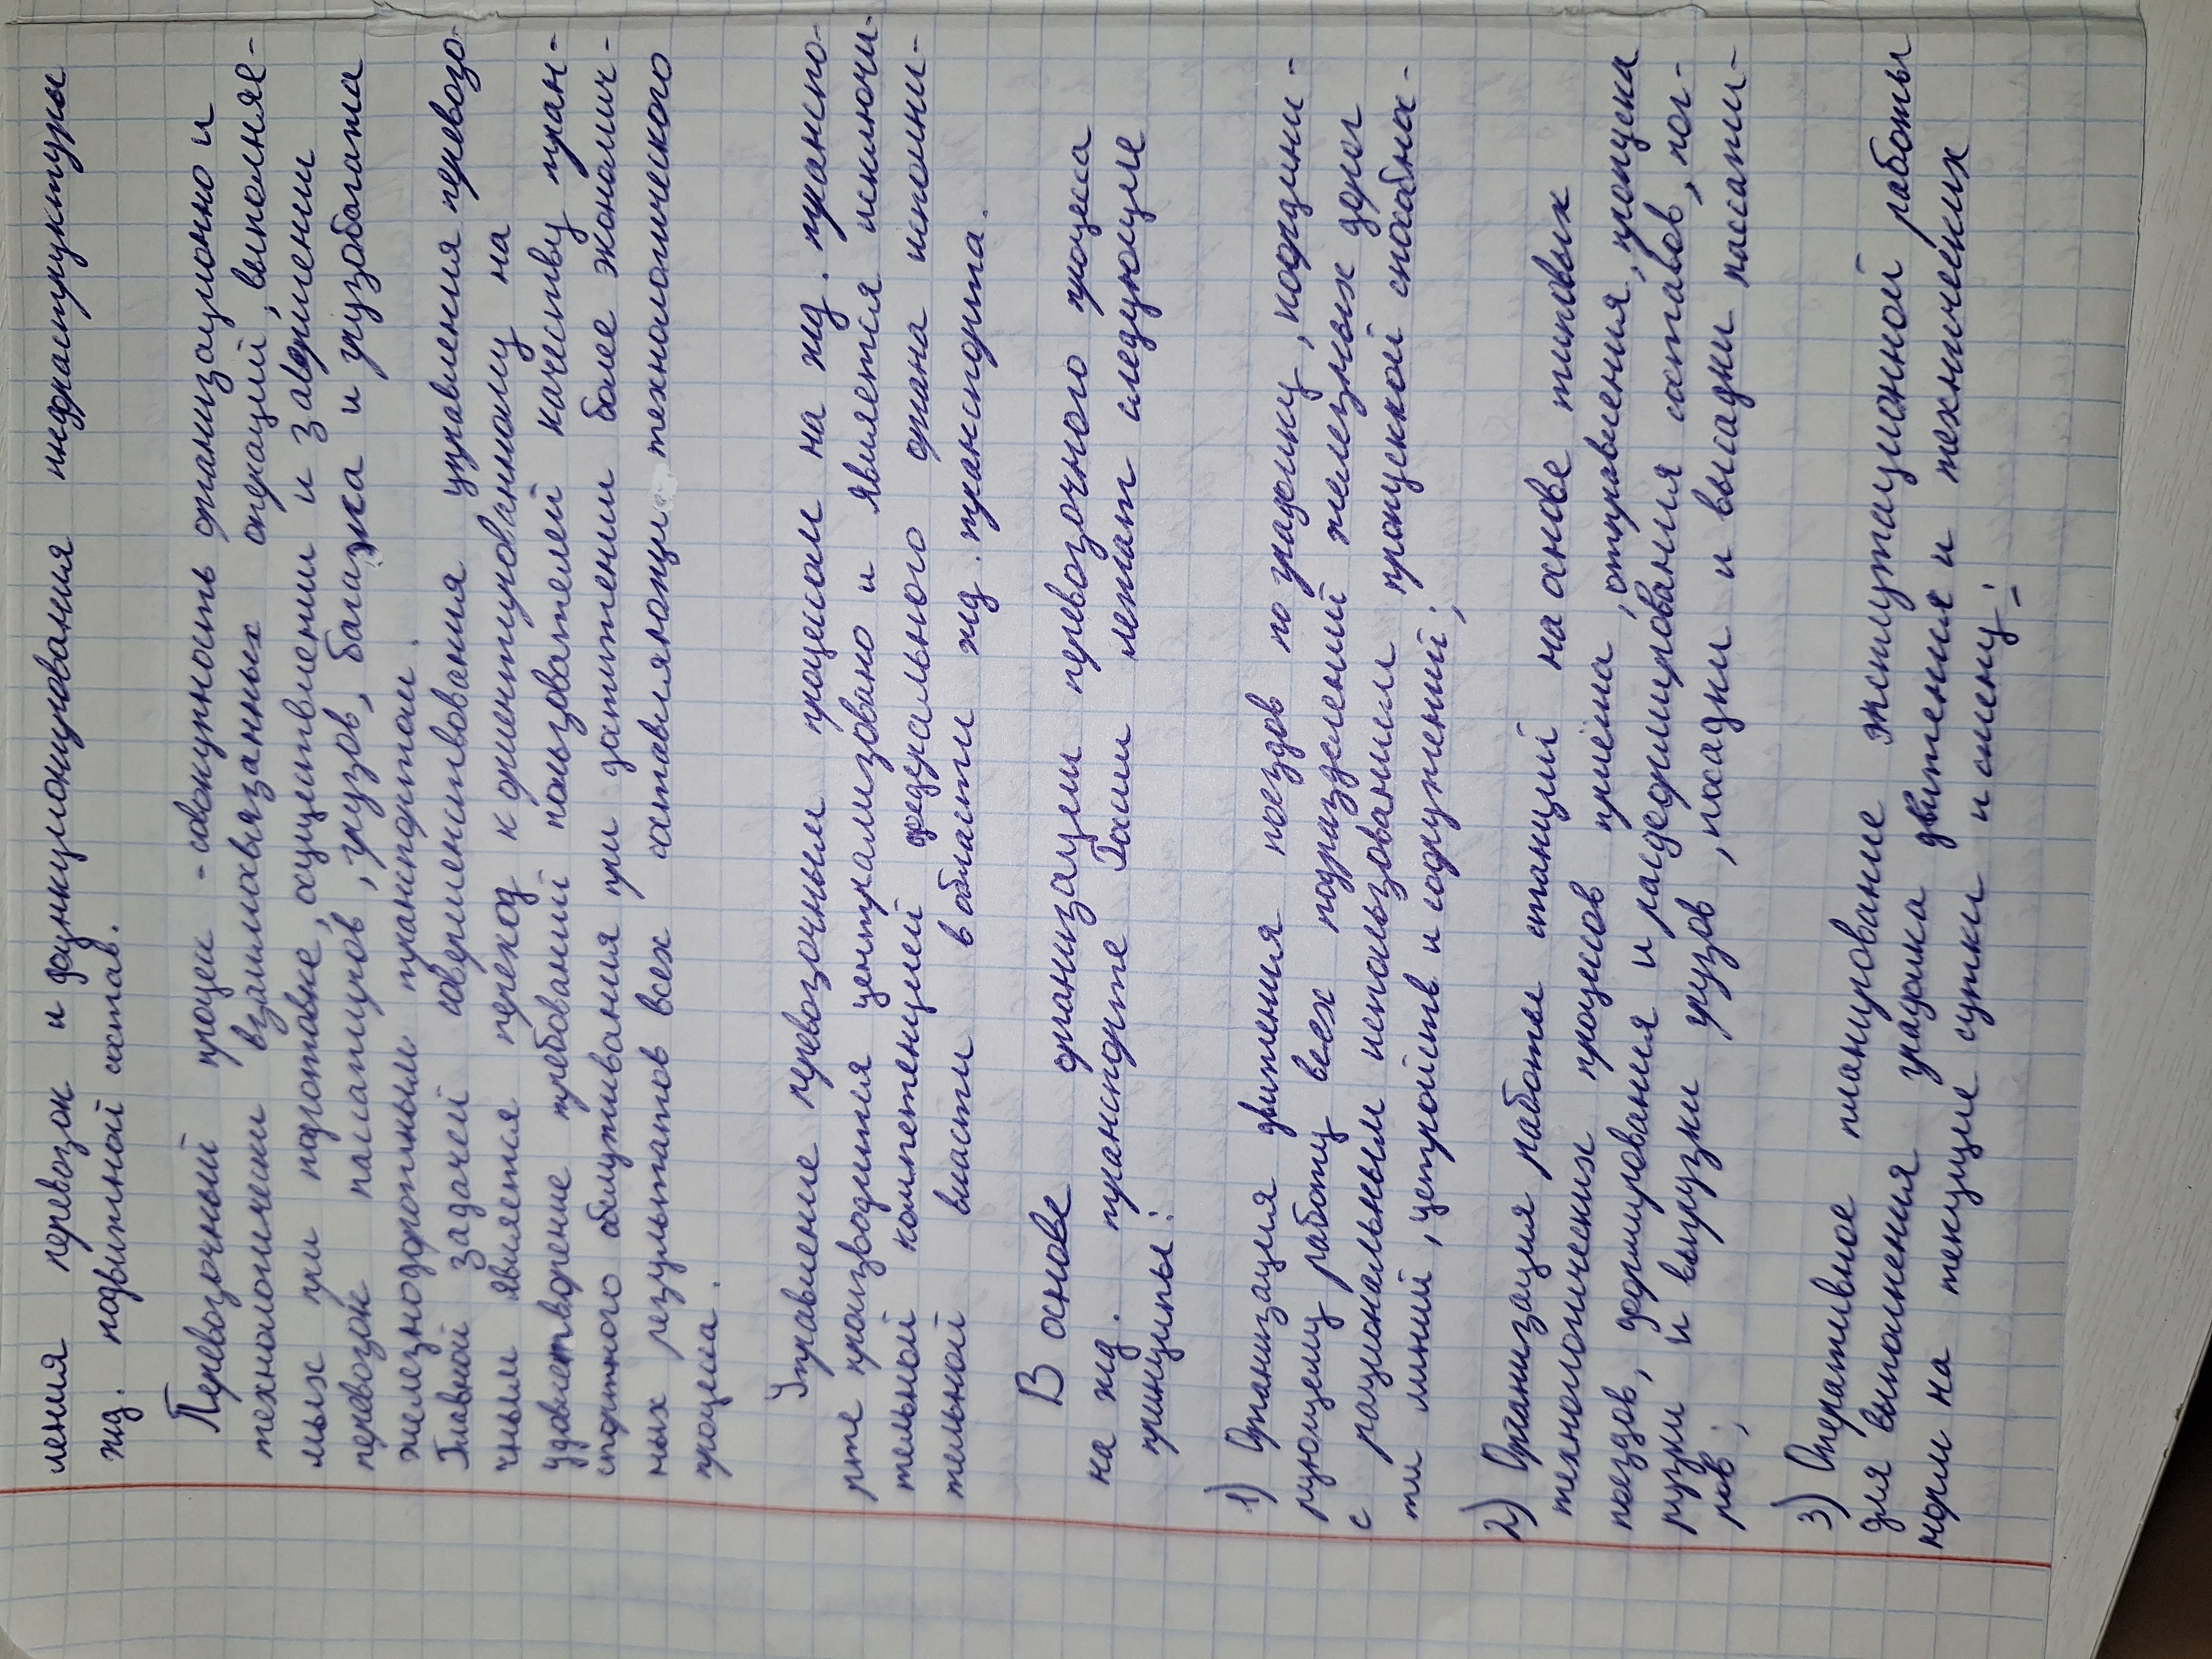 ления перевозок и функционирования инфраструктуры
жд. подвижной состав.
Перевозочный процесс - совокупность организационно и
технологически взаимосвязанных операций, выполняе-
мых при подготовке, осуществлении и завершении
перевозок пассажиров, грузов, багажа и грузобагажа
железнодорожным транспортом.
Главной задачей совершенствования управления перевозо-
чным является переход к ориентированному на
удовлетворение требований пользователей качеству тран-
спортного обслуживания при достижении более экономич-
ных результатов всех составляющих технологического
процесса.
Управление перевозочным процессом на жд. транспо-
рте производится централизовано и является исключи-
тельной компетенцией федерального органа исполни-
тельной власти в области жд. транспорта.
В основе организации перевозочного процесса
на жд. транспорте России лежат следующие
принципы:
1) Организация движения поездов по графику, коорди-
рующему работу всех подразделений железных дорог
с рациональным использованием пропускной способно-
ти линий, устройств и сооружений;
2) Организация работы станций на основе типовых
технологических процессов приёма, отправления, пропуска
поездов, формирования и расформирования составов, пог-
рузки и выгрузки грузов, посадки и высадки пассажи-
ров;
3) Оперативное планирование эксплутационной работы
для выполнения графика движения и технических
норм на текущие сутки и смену;